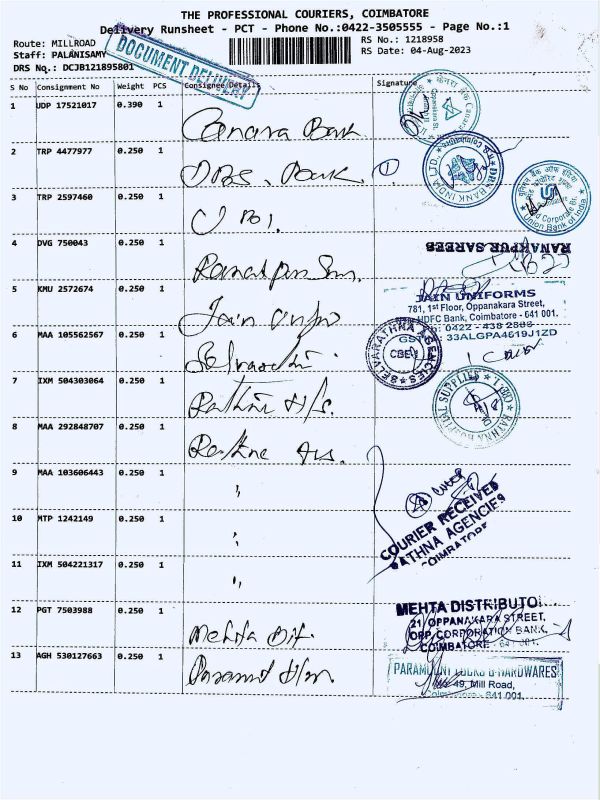 THE PROFESSIONAL COURIERS, COIMBATORE
Delivery Runsheet - PCT - Phone No.:0422-3505555 - Page No.:1
Route: MILLROAD
Staff: PALANISAMY
DRS No.: DCJB121895801
RS No.: 1218958
RS Date: 04-Aug-2023
DOCUMENT DELIVERY
S No Consignment No Weight PCS Consignee Details Signature
1 UDP 17521017 0.390 1 Canara Bank
2 TRP 4477977 0.250 1 DBS. Bank 1
DBS BANK INDIA LTD.,
3 TRP 2597460 0.250 1 UBI.
Union Bank of India
4 DVG 750043 0.250 1
RANAKPUR SAREES
5 KMU 2572674 0.250 1 Jain
JAIN UNIFORMS
781, 1st Floor, Oppanakara Street,
HDFC Bank, Coimbatore - 641 001.
0422 - 438 2808
GST 33ALGPA4619J1ZD
6 MAA 105562567 0.250 1
SELVARATHNA AGENCIES
CBE-1
7 IXM 504303064 0.250 1
RATHNA HOSPITAL SUPPLIES CBE-1
8 MAA 292848707 0.250 1
9 MAA 103606443 0.250 1 "
COURIER RECEIVED
RATHNA AGENCIES
COIMBATORE
10 MTP 1242149 0.250 1 "
11 IXM 504221317 0.250 1 "
12 PGT 7503988 0.250 1 Mehta
MEHTA DISTRIBUTO
21 OPPANAKARA STREET,
OPP. CORPORATION BANK,
COIMBATORE - 641 001.
13 AGH 530127663 0.250 1
PARAMOUNT LOCKS & HARDWARES
49, Mill Road,
Coimbatore - 641 001.